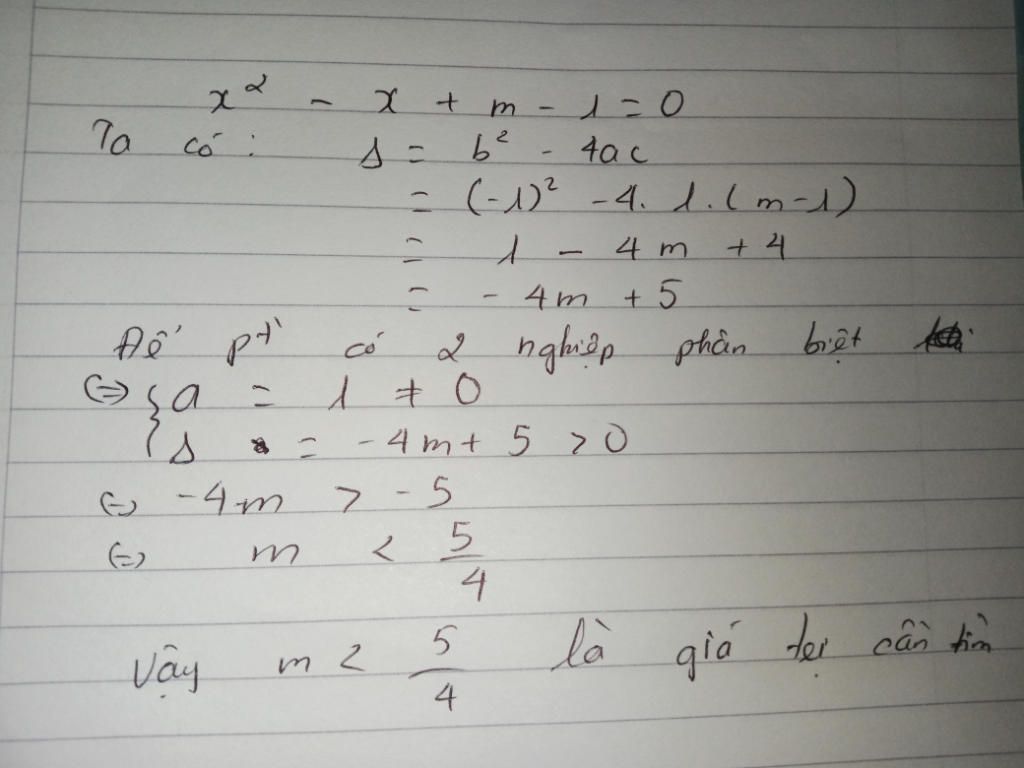 x² - x + m - 1 = 0
Ta có: Δ = b² - 4ac
= (-1)² - 4. 1. (m-1)
= 1 - 4m + 4
= - 4m + 5
Để pt có 2 nghiệp phân biệt
(=) { a = 1 ≠ 0
Δ = -4m + 5 > 0
(=) -4m > -5
(=) m < 5/4
Vậy m < 5/4 là giá tị cần tìm